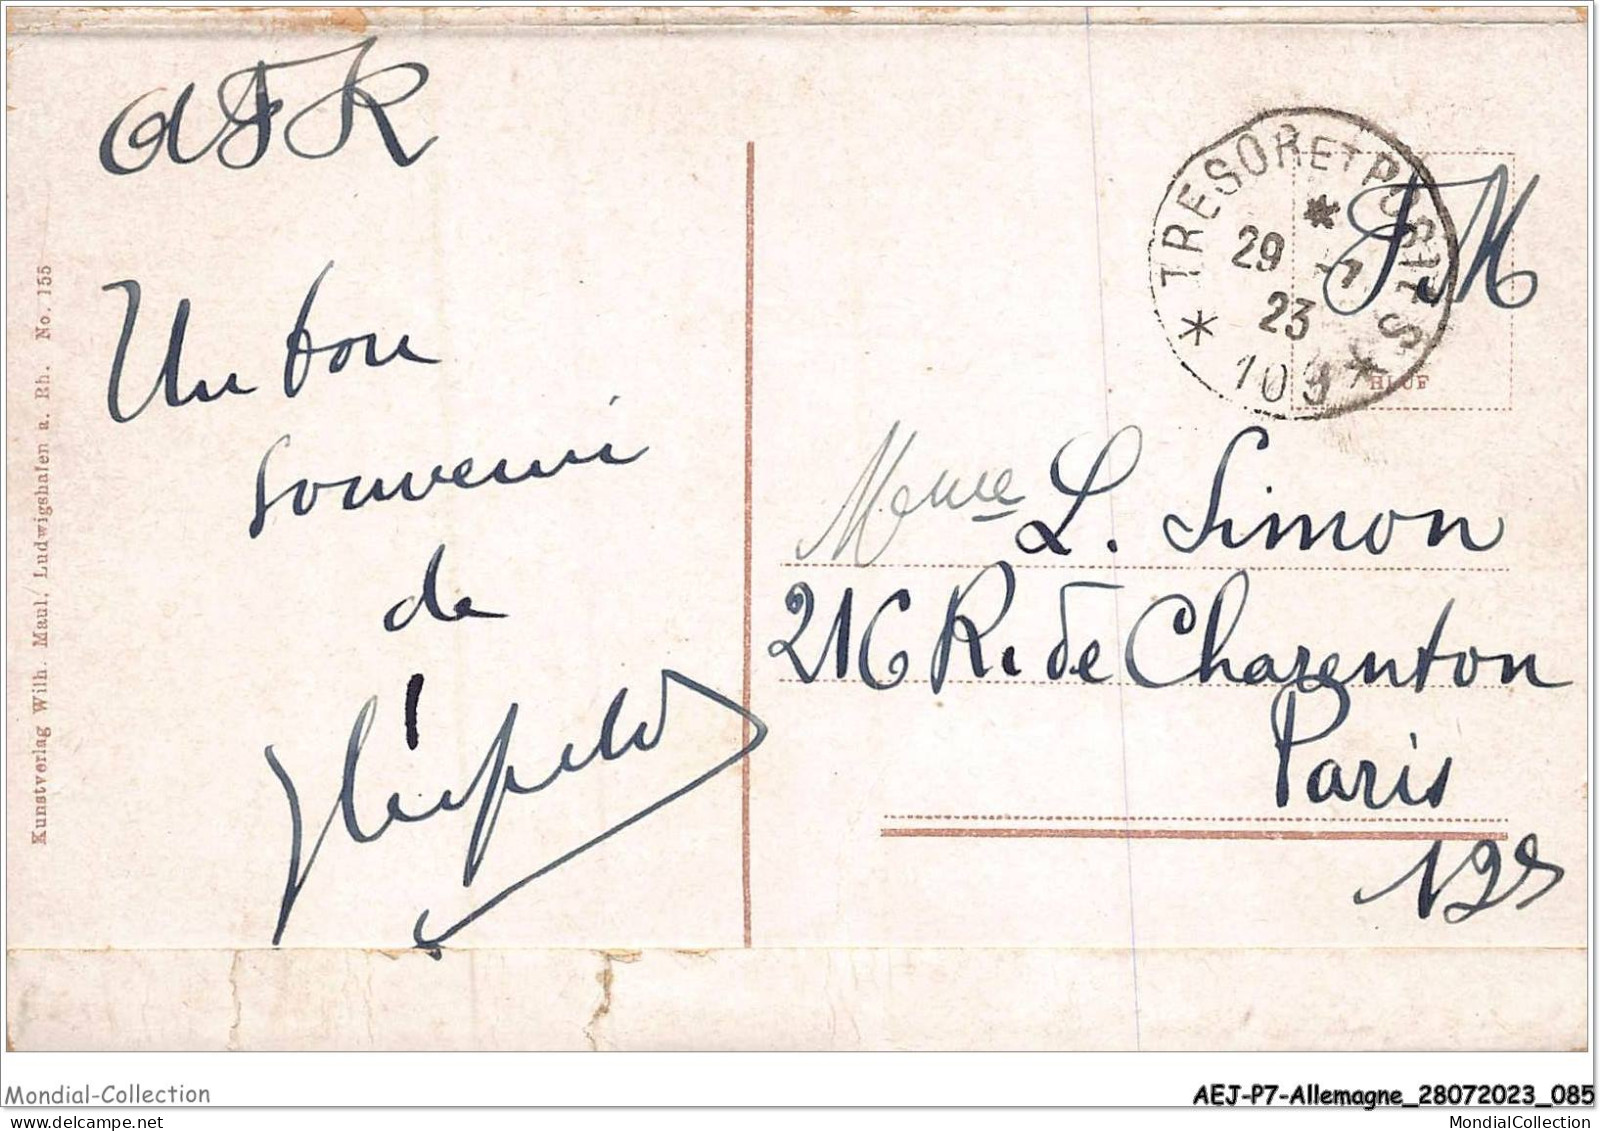 AFR
Un bon
souvenir
de
Kunstverlag Wilh. Maul, Ludwigshafen a. Rh. No. 155
* TRESOR ET POSTES *
*
29 -7
23
FM
Mme L. Simon
216 R. de Charenton
Paris
12e
Mondial-Collection
AEJ-P7-Allemagne_28072023_085
delcampe.net
MondialCollection